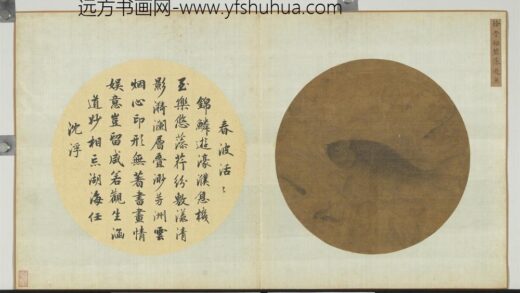 远方书画网-www.yfshuhua.com
春波活〻
錦鱗遊濠濮息機
至樂悠藻荇紛敷漾清
影漪瀾層疊渺芳洲雲
烟心印形無著書畫情
娛意豈留咸若觀生涵
道妙相忘湖海任
沈浮